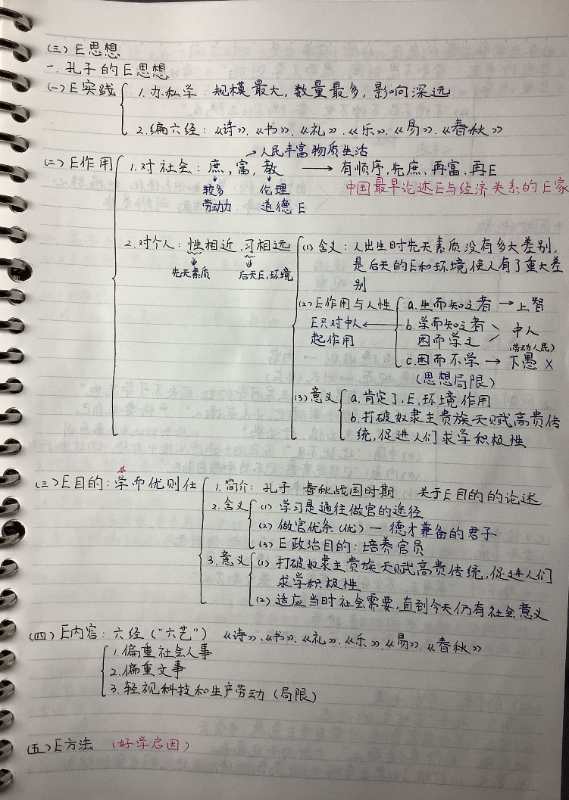 (三) E思想
一. 孔子的E思想
(一) E实践 1. 办私学 规模最大, 数量最多, 影响深远
2. 编六经: 《诗》、《书》、《礼》、《乐》、《易》、《春秋》
→人民丰富物质生活
(二) E作用 1. 对社会: 庶, 富, 教 → 有顺序, 先庶, 再富, 再E
较多 伦理 中国最早论述E与经济关系的E家
劳动力 道德E
2. 对个人: 性相近, 习相远 (1) 含义: 人出生时先天素质没有多大差别,
先天素质 后天E, 环境 是后天的E和环境使人有了重大差
别
(2) E作用与人性 a. 生而知之者 → 上智
E只对中人 ← b. 学而知之者 中人
起作用 困而学之 (劳动人民)
c. 困而不学 → 下愚 X
(思想局限)
(3) 意义 a. 肯定了, E, 环境作用
b. 打破奴隶主贵族天赋高贵传
统, 促进人们求学积极性
(三) E目的: 学而优则仕 1. 简介: 孔子 春秋战国时期 关于E目的的论述
2. 含义 (1) 学习是通往做官的途径
(2) 做官优条(优) — 德才兼备的君子
(3) E政治目的: 培养官员
3. 意义 (1) 打破奴隶主贵族天赋高贵传统, 促进人们
求学积极性
(2) 适应当时社会需要, 直到今天仍有社会意义
(四) E内容: 六经 ("六艺") 《诗》、《书》、《礼》、《乐》、《易》、《春秋》
1. 偏重社会人事
2. 偏重文事
3. 轻视科技和生产劳动 (局限)
(五) E方法 (好学启因)